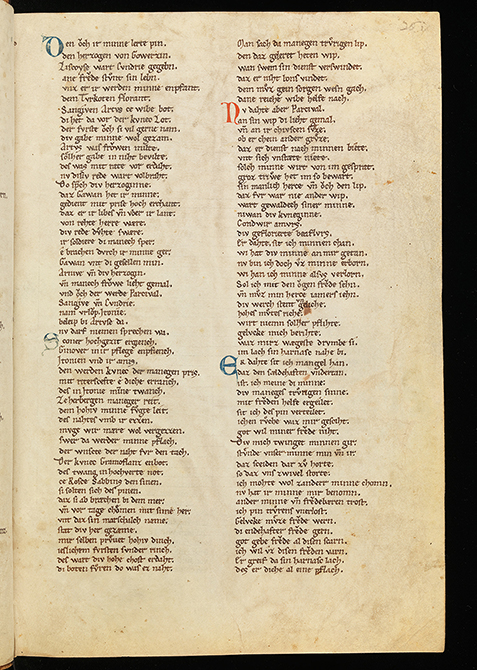 Den ŏch ir minne lerte pin.
den herzogen von Gowerzin.
Liscoyse wart Cvndrie gegebn.
ane frŏde stv̂nt sin lebn.
vnz er ir werden minne enpfant.
dem Tvrkoten florant.
Sangiven Artvs ce wibe bot.
di het da vor der kvnec Lot.
der fvrste ŏch si vil gerne nam.
div gabe minne wol gezam.
Artvs was frowen milte.
solher gabe in niht bevilte.
des was mit rate vor erdaht.
nv disiv rede wart volbraht.
Do sp̄ch div herzoginne.
daz Gawan het ir minne.
gedient mit prise hoch erchant.
daz er ir libes vn̄ vber ir lant.
von rehte herre wære.
div rede dvhte swære.
ir soldiere di manech sper.
e brachen dvrch ir minne ger.
Gawan vnt di gesellen min.
Arnive vn̄ div herzogin.
vn̄ manech frŏwe lieht gemal.
vnd ŏch der werde Parcival.
Sangive vn̄ Cvndrie.
nam vrlŏp Itonie.
beleip bi Artvse da.
nv darf niemen sprechen wa.
Sconer hochgezit ergiench.
Ginover in ir pflege enpfiench.
Itonien vnd ir amis.
den werden kvnec der manegen pris.
mit riterscefte e dicke erranch.
des in Itonie minne twanch.
Ze herbergen maneger reit.
dem hohiv minne fv̂gte leit.
des nahtes vmb ir ezzen.
mvge wir mære wol vergezzen.
swer da werder minne pflach.
der wnscte der naht fvr den tach.
Der kvnec Gramoflanz enbot.
des twang in hochverte not.
ce Rosce Sabbins den sinen.
si solten sich des pinen.
daz si ab brachen bi dem mer.
vn̄ vor tage chŏmen mit sime her.
vnt daz sin marschalch næme.
stat div her gezæme.
mir selben prvevet hohiv dinch.
ieslichem fvrsten svnder rinch.
des wart div hohe chost erdaht.
di boten fv̂ren do was ez naht.
Man sach da manegen trv̂rigen lip.
den daz geleret heten wip.
wan swem sin dienst verswindet.
daz er niht lons vindet.
dem mv̂z gein sorgen wesn gach.
dane reiche wibe helfe nach.
Nv dahte aber Parcival.
an sin wip di lieht gemal.
vn̄ an ir chivschen sv̂ze.
ob er chein ander grv̂ze.
daz er dienst nach minnen biete.
vnt sich vnstæte niete.
solch minne wirt von im gespart.
groz triwe het im so bewart.
sin manlich herce vn̄ ŏch den lip.
daz fvr war nie ander wip.
wart gewaldech siner minne.
niwan div kvneginne.
Condwir amvrs.
div geflorierte beaflvrs.
Er dahte. sit ich minnen chan.
wi hat div minne an mir getan.
nv bin ich doch vz minne erborn.
wi han ich minne alsvs verlorn.
Sol ich mit den ŏgen frŏde sehn.
vn̄ mv̂z min herce iamers iehn.
div werch stent vngeliche.
hohes mv̂tes riche.
wirt niemn solher pflihte.
gelvcke mich berihte.
waz mirz wægeste drvmbe si.
im lach sin harnasc nahe bi.
Er dahte sit ich mangel han.
daz den sældehaften vndertan.
ist. ich meine di minne.
div maneges trv̂rigen sinne.
mit frŏden helfe ergeilet.
sit ich des pin verteilet.
ichen rv̂che waz mir gesciht.
got wil miner frŏde niht.
Div mich twinget minnen gir.
stv̂nde vnser minne min vn̄ ir.
daz sceiden dar zv̂ horte.
so daz vns zwivel storte.
ich mohte wol zanderr minne chomn.
nv hat ir minne mir benomn.
ander minne vn̄ frŏdebæren trost.
ich pin trvrens vnerlost.
Gelvcke mv̂ze frŏde wern.
di endehafter frŏde gern.
got gebe frŏde al disen scharn.
ich wil vz disen frŏden varn.
Er greif da sin harnasc lach.
des er dicke al eine pflach.